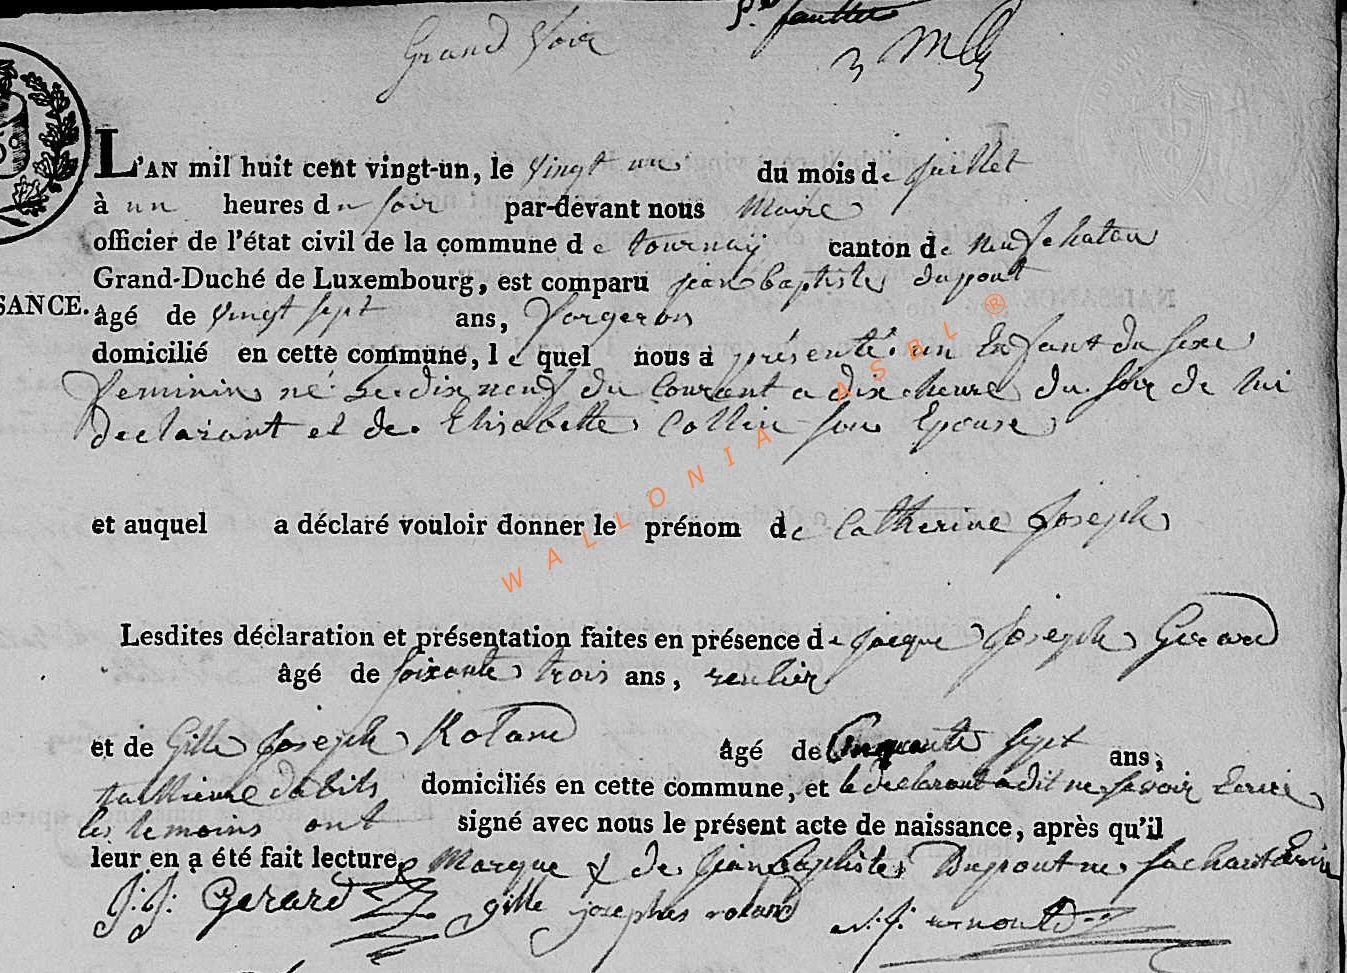 Grand Voir
L'AN mil huit cent vingt-un, le vingt un du mois de juillet
à un heures du soir par-devant nous Maire
officier de l'état civil de la commune de tournay canton de neufchatau
Grand-Duché de Luxembourg, est comparu jean baptiste dupont
SANCE. âgé de vingt sept ans, forgeron
domicilié en cette commune, le quel nous a présenté un Enfant du sexe
feminin né le dix neuf du Courant a dix heure du soir de lui
declarant et de Elisabette Collin son Epouse
et auquel a déclaré vouloir donner le prénom de Catherine Joseph
Lesdites déclaration et présentation faites en présence de jacque Joseph Gerard
âgé de soixante trois ans, rentier
et de Gille Joseph Roland âgé de Cinquante sept ans,
taillieure dabits domiciliés en cette commune, et le declarant a dit ne savoir Ecrire
les temoins ont signé avec nous le présent acte de naissance, après qu'il
leur en a été fait lecture, Marque de jean baptiste Dupont ne sachant Ecrire
J: J: Gerard gille josephes roland
WALLONIA ASBL ®